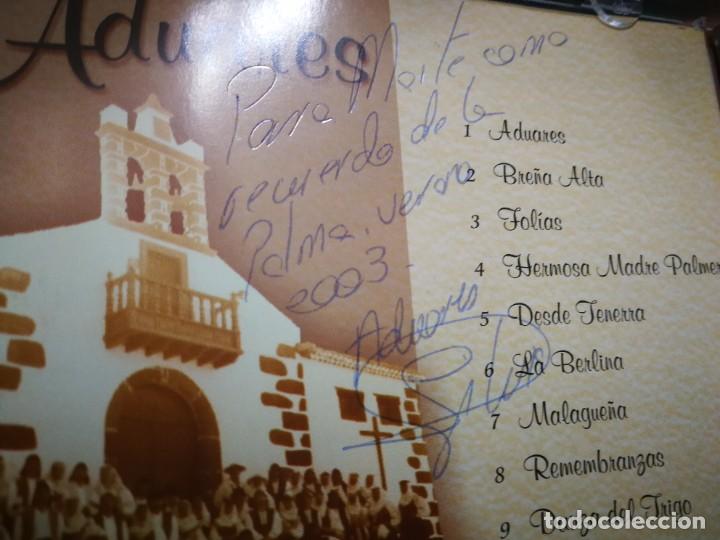 Aduares
Para Maite como
recuerdo de la
Palma. verano
2003.
Aduares
1 Aduares
2 Breña Alta
3 Folías
4 Hermosa Madre Palmer
5 Desde Tenerra
6 La Berlina
7 Malagueña
8 Remembranzas
9 Danza del Trigo
todocoleccion